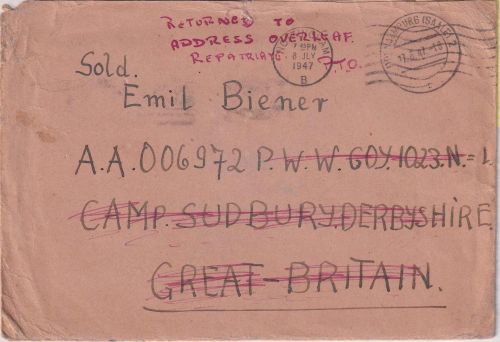 RETURNED TO
ADDRESS OVERLEAF.
REPATRIATE P.T.O.
8 JLY
1947
B
Sold.
Emil Biener
A.A.006972 P.W.W. COY.1023.N.=1.
CAMP. SUDBURY.DERBYSHIRE
GREAT-BRITAIN.